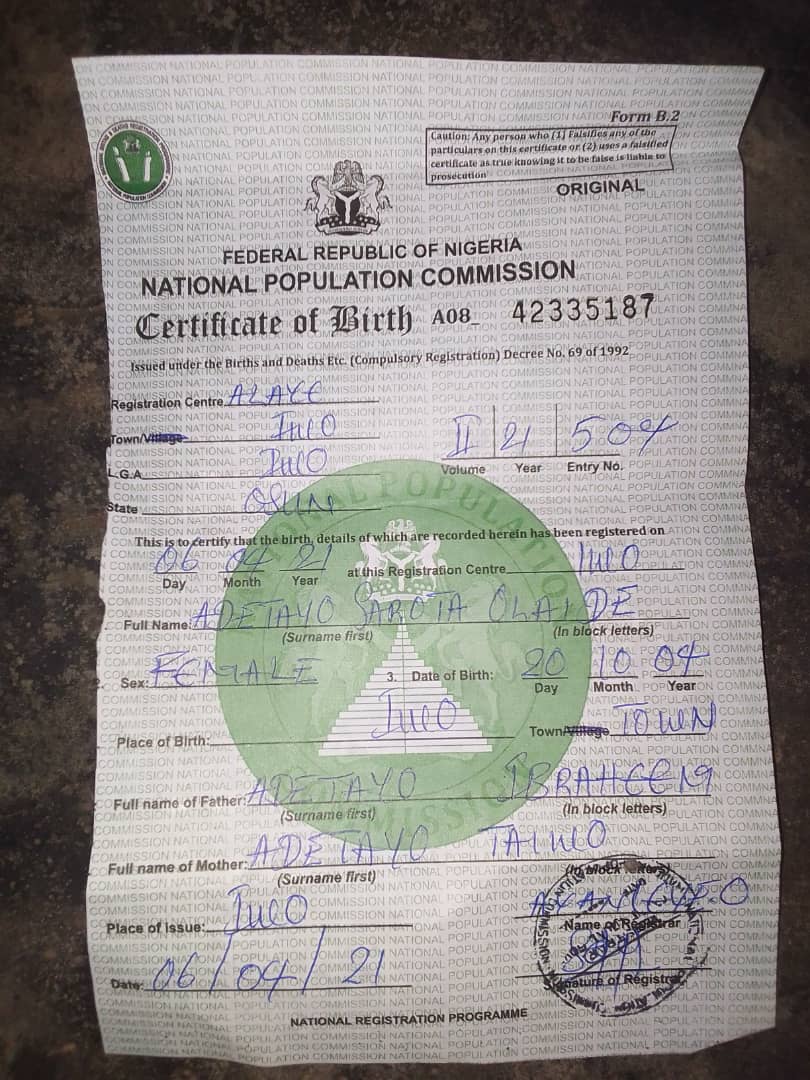 Form B.2
Caution: Any person who (1) Falsifies any of the
particulars on this certificate or (2) uses a falsified
certificate as true knowing it to be false is liable to
prosecution
ORIGINAL
FEDERAL REPUBLIC OF NIGERIA
NATIONAL POPULATION COMMISSION
Certificate of Birth A08_ 42335187
Issued under the Births and Deaths Etc. (Compulsory Registration) Decree No. 69 of 1992
Registration Centre ALAYE
Town/Village IWO
L.G.A IWO
II 21 504
Volume Year Entry No.
State OSUN
This is to certify that the birth, details of which are recorded herein has been registered on
06 04 21 at this Registration Centre IWO
Day Month Year
Full Name: ADETAYO OLAIDE
(Surname first) (In block letters)
Sex: FEMALE 3. Date of Birth: 20 10 04
Day Month Year
Place of Birth: IWO Town/Village TOWN
Full name of Father: ADETAYO IBRAHEEM
(Surname first) (In block letters)
Full name of Mother: ADETAYO TAIWO
(Surname first) (In block letters)
Place of Issue: IWO
Name of Registrar
Date: 06/04/21
Signature of Registrar
NATIONAL REGISTRATION PROGRAMME